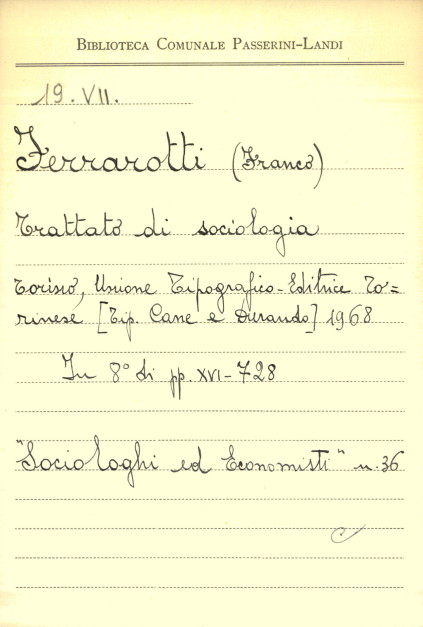 BIBLIOTECA COMUNALE PASSERINI-LANDI
19. VII.
Ferrarotti (Franco)
Trattato di sociologia
Torino, Unione Tipografico-Editrice To=
rinese [Tip. Cane e Durando] 1968
In 8° di pp. XVI-728
"Sociologhi ed Economisti" n. 36
C